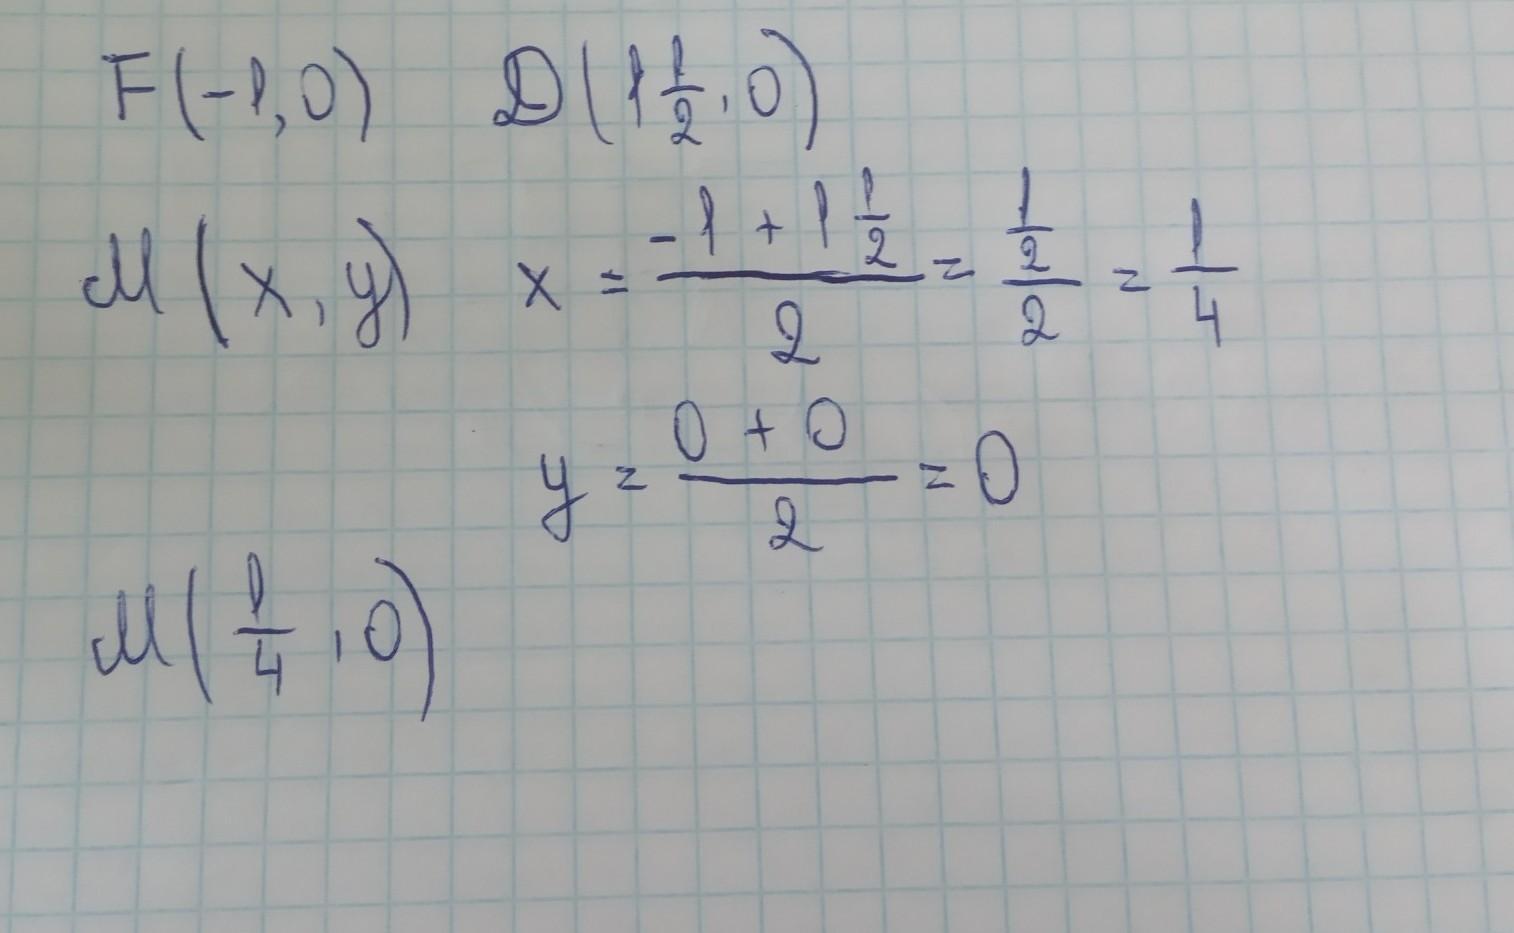 F(-1,0) D(1 1/2, 0)
M(x, y) x = (-1 + 1 1/2)/2 = (1/2)/2 = 1/4
y = (0 + 0)/2 = 0
M(1/4, 0)